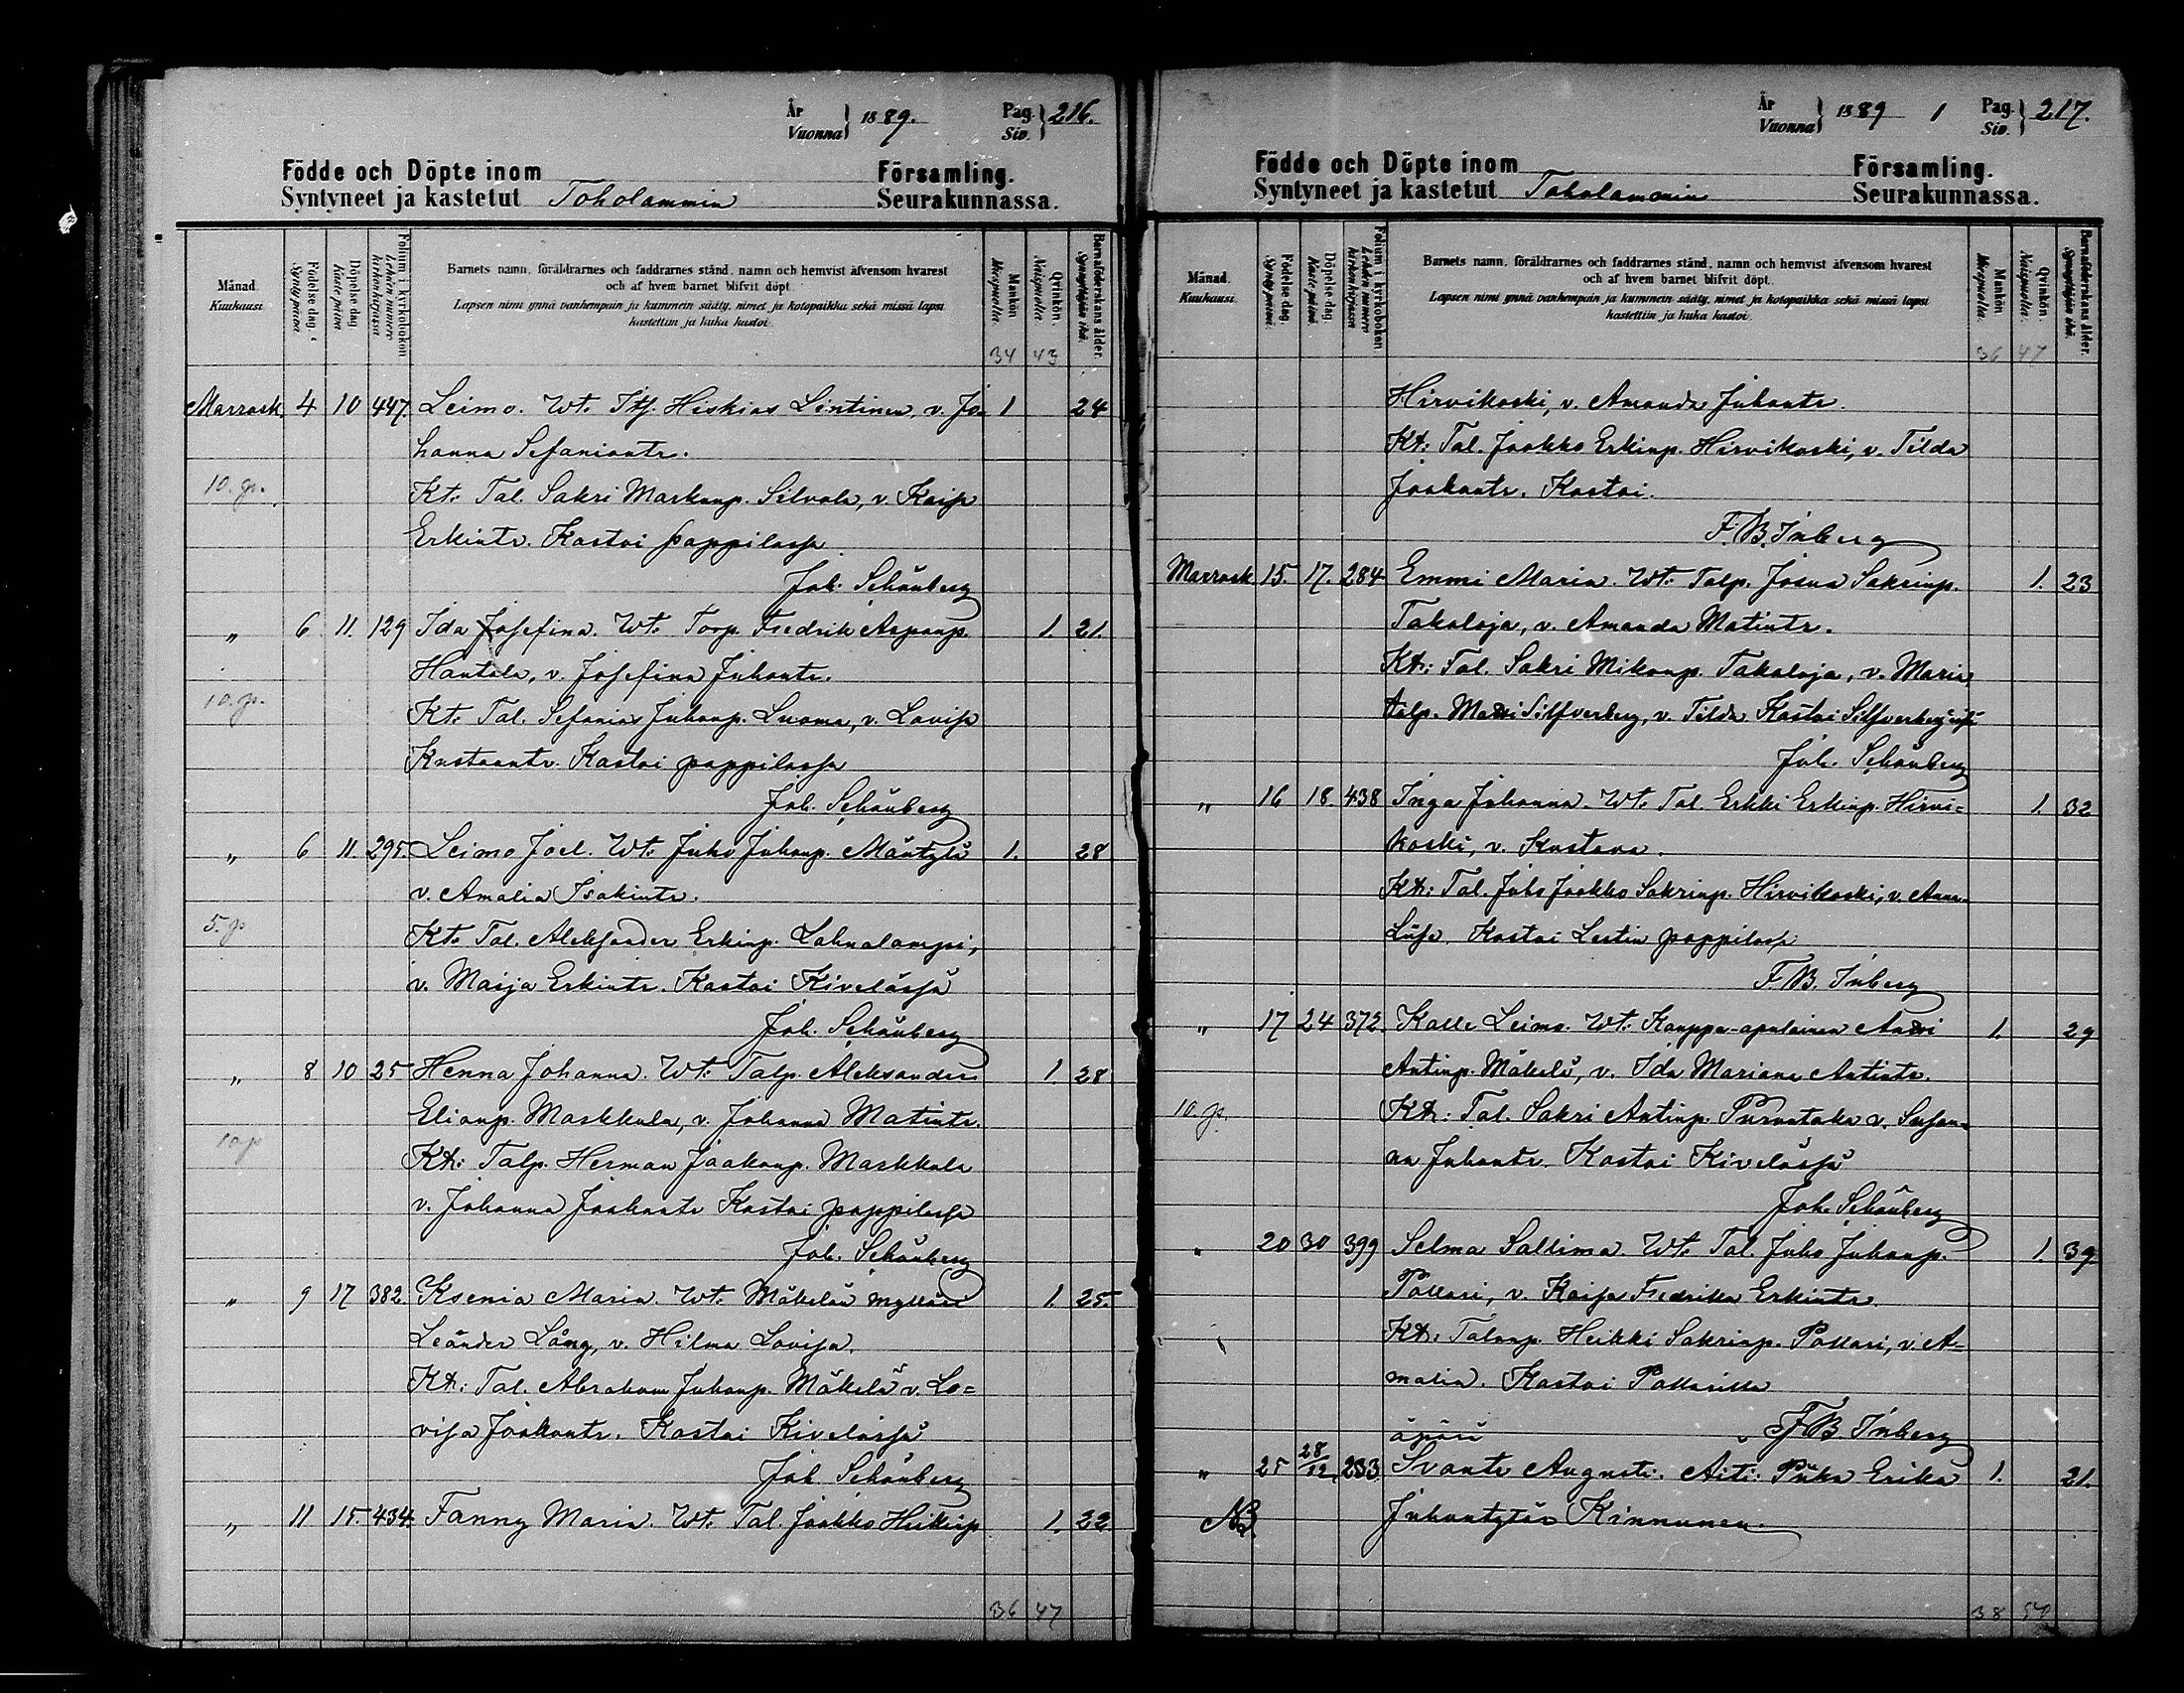 År
Vuonna } 1889. Pag. Siv. } 216.
Födde och Döpte inom Församling.
Syntyneet ja kastetut Toholammin Seurakunnassa.
Månad. Kuukausi.
Födelse dag. Syntypäivä
Döpelse dag. Kaste päivä
Folium i kyrkoboken Lehden numero kirkonkirjassa
Barnets namn, föräldrarnes och faddrarnes stånd, namn och hemvist äfvensom hvarest
och af hvem barnet blifvit döpt.
Lapsen nimi ynnä vanhempain ja kummein sääty, nimet ja kotopaikka sekä missä lapsi
kastettiin ja kuka kastoi.
Mankön Miespuolia.
Qvinkön. Naispuolia.
Barnaföderskans ålder. Synnyttäjän ikä.
34 43
Marrask. 4 10 447. Leimo. Wt: Itk. Hiskias Lintinen, v. Jo- 1 24
hanna Sefaniantr.
10. p. Kt: Tal. Sakri Markunp. Silvola, v. Kaisa
Erkintr. Kastoi pappilassa
Joh. Schönberg
" 6 11. 129 Ida Josefina. Wt: Torp. Fredrik Aaponp. 1. 21.
Hautala, v. Josefina Juhontr.
10. p. Kt: Tal. Sefanias Juhonp. Luoma, v. Lovisa
Kustaantr. Kastoi pappilassa
Joh. Schönberg
" 6 11. 295. Leimo Joel. Wt: Juho Juhonp. Mäntylä 1. 28
v. Amalia Isakintr.
5. p Kt: Tal. Aleksander Erkinp. Lahnalampi,
v. Maija Erkintr. Kastoi Kivelässä
Joh. Schönberg
" 8 10 25 Henna Johanna. Wt: Talp. Aleksander 1. 28
Elianp. Markkula, v. Johanna Matintr.
10 p Kt: Talp. Herman Jaakonp. Markkula
v. Johanna Jaakontr Kastoi pappilassa
Joh. Schönberg
" 9 17 382. Ksenia Maria. Wt: Mäkelän mylläri 1. 25.
Leander Lång, v. Hilma Lovisa.
Kt: Tal. Abraham Juhonp. Mäkelä v. Lo=
visa Jaakontr. Kastoi Kivelässä
Joh. Schönberg
" 11 15. 434. Fanny Maria. Wt: Tal. Jaakko Heikinp. 1. 22
36 47
År
Vuonna } 1889 1 Pag. Siv. } 217.
Födde och Döpte inom Församling.
Syntyneet ja kastetut Toholammin Seurakunnassa.
Månad. Kuukausi.
Födelse dag. Syntypäivä.
Döpelse dag. Kaste päivä.
Folium i kyrkoboken Lehden numero kirkonkirjassa
Barnets namn, föräldrarnes och faddrarnes stånd, namn och hemvist äfvensom hvarest
och af hvem barnet blifvit döpt.
Lapsen nimi ynnä vanhempain ja kummein sääty, nimet ja kotopaikka sekä missä lapsi
kastettiin ja kuka kastoi.
Mankön Miespuolia.
Qvinkön. Naispuolia.
Barnaföderskans ålder. Synnyttäjän ikä.
36 47
Hirvikoski, v. Amanda Juhontr.
Kt: Tal. Jaakko Erkinp. Hirvikoski, v. Tilda
Jaakontr. Kastoi.
F. B. Inberg
Marrask. 15. 17. 284 Emmi Maria. Wt: Talp. Josua Sakrinp. 1. 23
Takaloja, v. Amanda Matintr.
Kt: Tal. Sakri Mikonp. Takaloja, v. Maria,
talp. Matti Silfverberg, v. Tilda Kastoi Silfverbergissä
Joh. Schönberg
" 16 18. 438 Inga Johanna. Wt: Tal. Erkki Erkinp. Hirvi= 1. 32
koski, v. Kustava.
Kt: Tal. Juho Jaakko Sakrinp. Hirvikoski, v. Anna
Liisa. Kastoi Lestin pappilassa
F. B. Inberg
" 17 24 372. Kalle Leimo. Wt: Kauppa-apulainen Antti 1. 29
Antinp. Mäkelä, v. Ida Mariana Antintr.
10. p. Kt: Tal. Sakri Antinp. Purontaka v. Susan=
na Juhontr. Kastoi Kivelässä
Joh. Schönberg
" 20 30 399 Selma Sallima. Wt: Tal. Juho Juhonp. 1. 39.
Pollari, v. Kaisa Fredrika Erkintr.
Kt: Talonp. Heikki Sakrinp. Pollari, v. A=
malia. Kastoi Pollarilla
äpärä F. B. Inberg
" 25 28/12. 233. Svante Augusti. Äiti: Piika Erika 1. 21.
NB. Juhontytär Kinnunen.
38 50